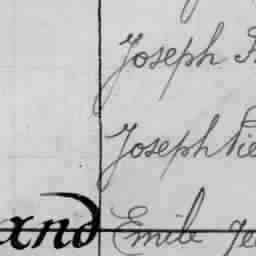 Joseph
Joseph Pie
and Emile Je